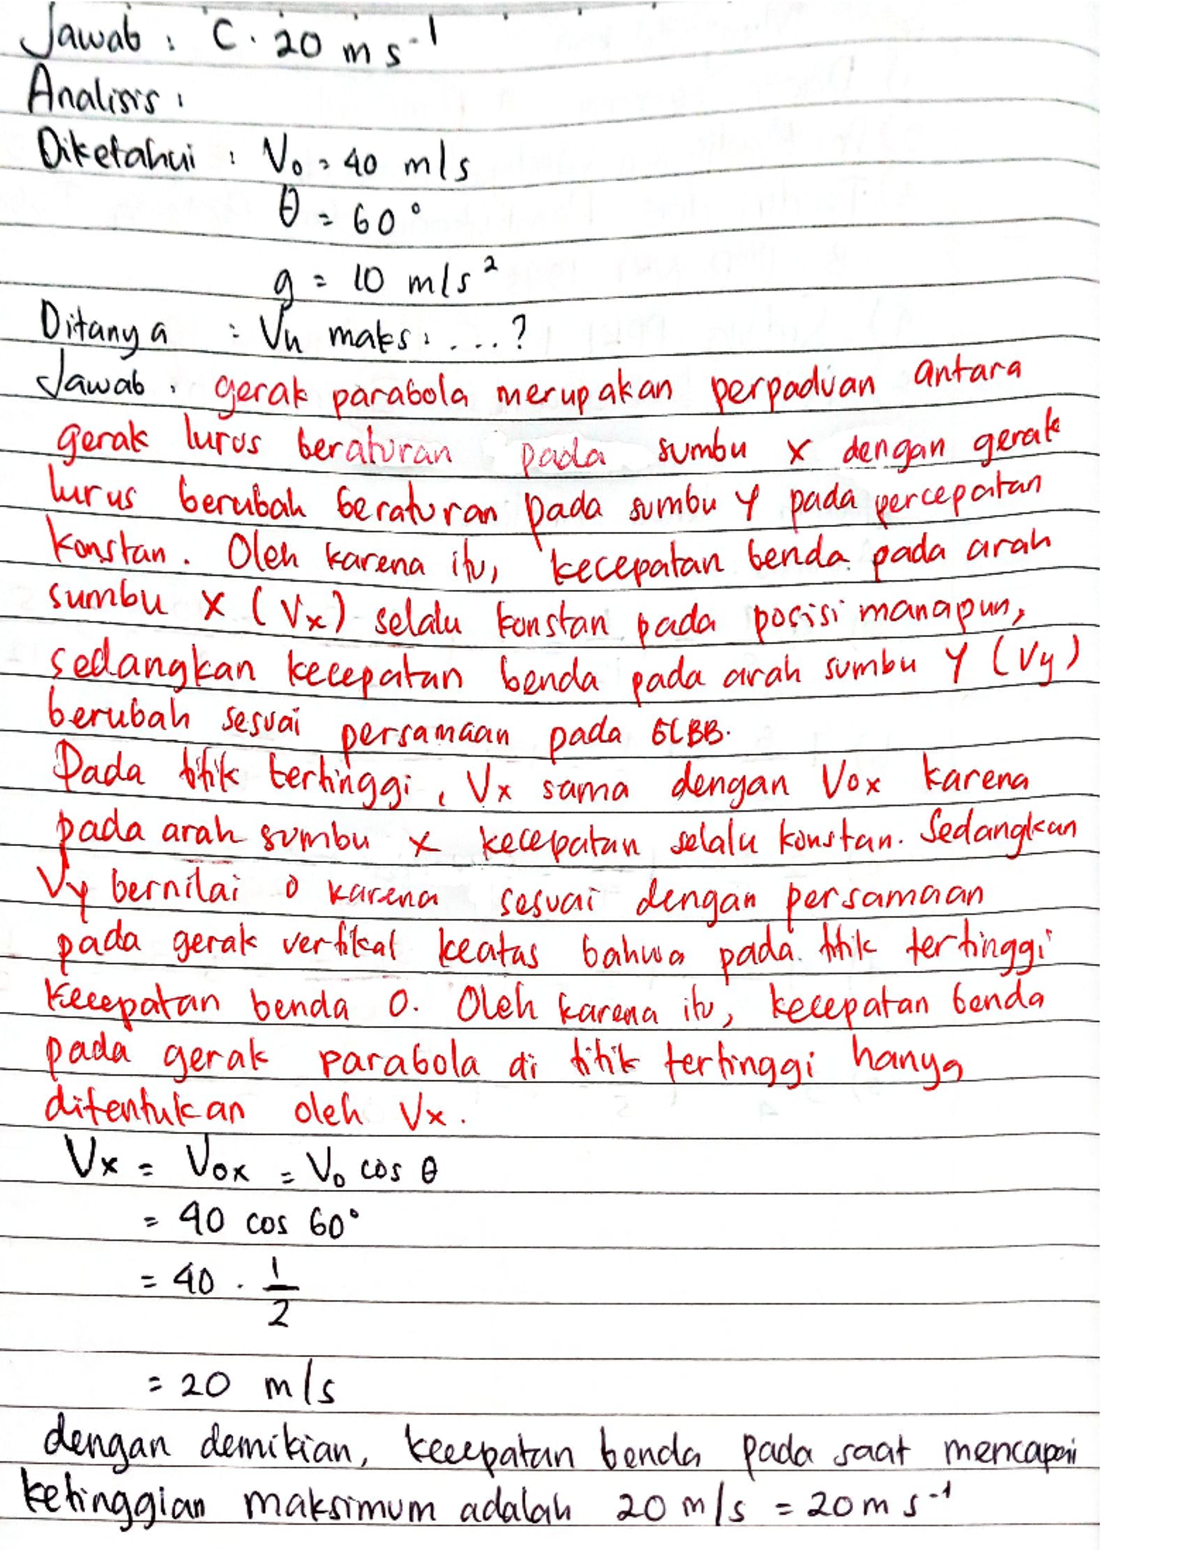 Jawab : C. 20 m s⁻¹
Analisis :
Diketahui : V₀ = 40 m/s
θ = 60°
g = 10 m/s²
Ditanya : Vh maks : ...?
Jawab : gerak parabola merupakan perpaduan antara
gerak lurus beraturan pada sumbu x dengan gerak
lurus berubah beraturan pada sumbu y pada percepatan
konstan. Oleh karena itu, kecepatan benda pada arah
sumbu x (Vx) selalu konstan pada posisi manapun,
sedangkan kecepatan benda pada arah sumbu y (Vy)
berubah sesuai persamaan pada GLBB.
Pada titik tertinggi, Vx sama dengan Vox karena
pada arah sumbu x kecepatan selalu konstan. Sedangkan
Vy bernilai 0 karena sesuai dengan persamaan
pada gerak vertikal keatas bahwa pada titik tertinggi
kecepatan benda 0. Oleh karena itu, kecepatan benda
pada gerak parabola di titik tertinggi hanya
ditentukan oleh Vx.
Vx = Vox = V₀ cos θ
= 40 cos 60°
= 40 . 1/2
= 20 m/s
dengan demikian, kecepatan benda pada saat mencapai
ketinggian maksimum adalah 20 m/s = 20 m s⁻¹